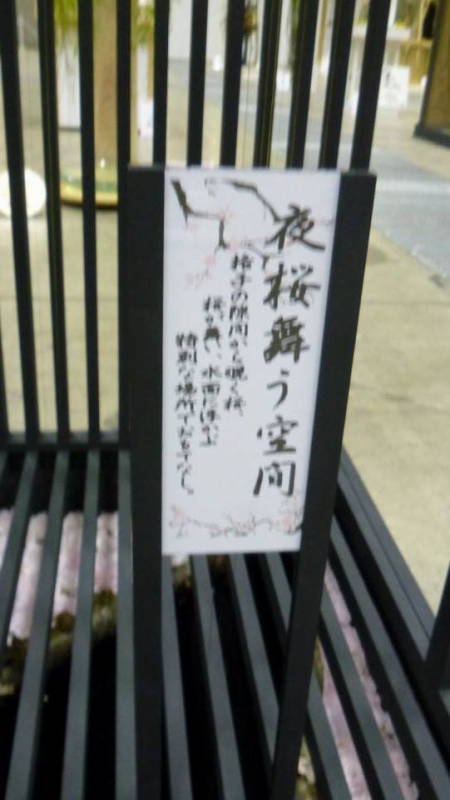 夜桜舞う空間
格子の隙間から覗く桜、
桜が舞い、水面に浮かぶ
特別な場所でおもてなし。